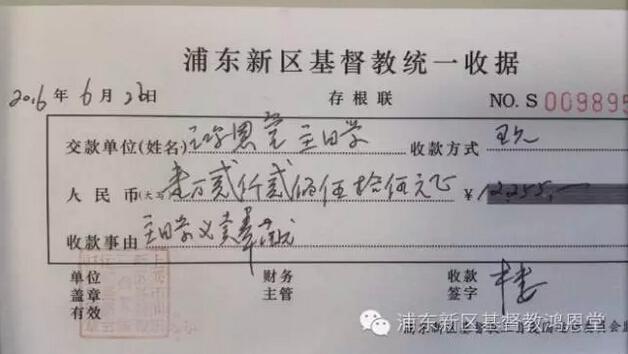 浦东新区基督教统一收据
2016年6月26日 存根联 NO.S 009895
交款单位(姓名) 恩堂主日学 收款方式 现
人民币(大写) 壹万贰仟贰佰伍拾伍元正 ¥12,255.—
收款事由 主日学义卖奉献
单位盖章有效 财务主管 收款签字
浦东新区基督教鸿恩堂
浦东新区基督教三自